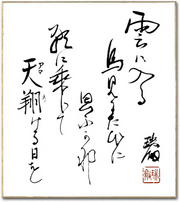 雲に入る
鳥見るたびに
思ふかな
龍に乗りて
天翔ける日を